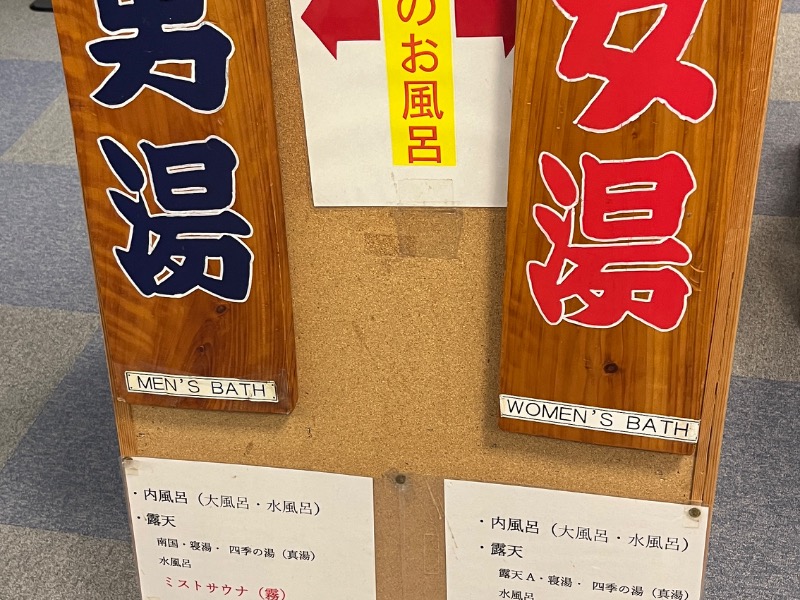 男湯
MEN'S BATH
のお風呂
女湯
WOMEN'S BATH
・内風呂（大風呂・水風呂）
・露天
南国・寝湯・四季の湯（真湯）
水風呂
ミストサウナ（霧）
・内風呂（大風呂・水風呂）
・露天
露天A・寝湯・四季の湯（真湯）
水風呂